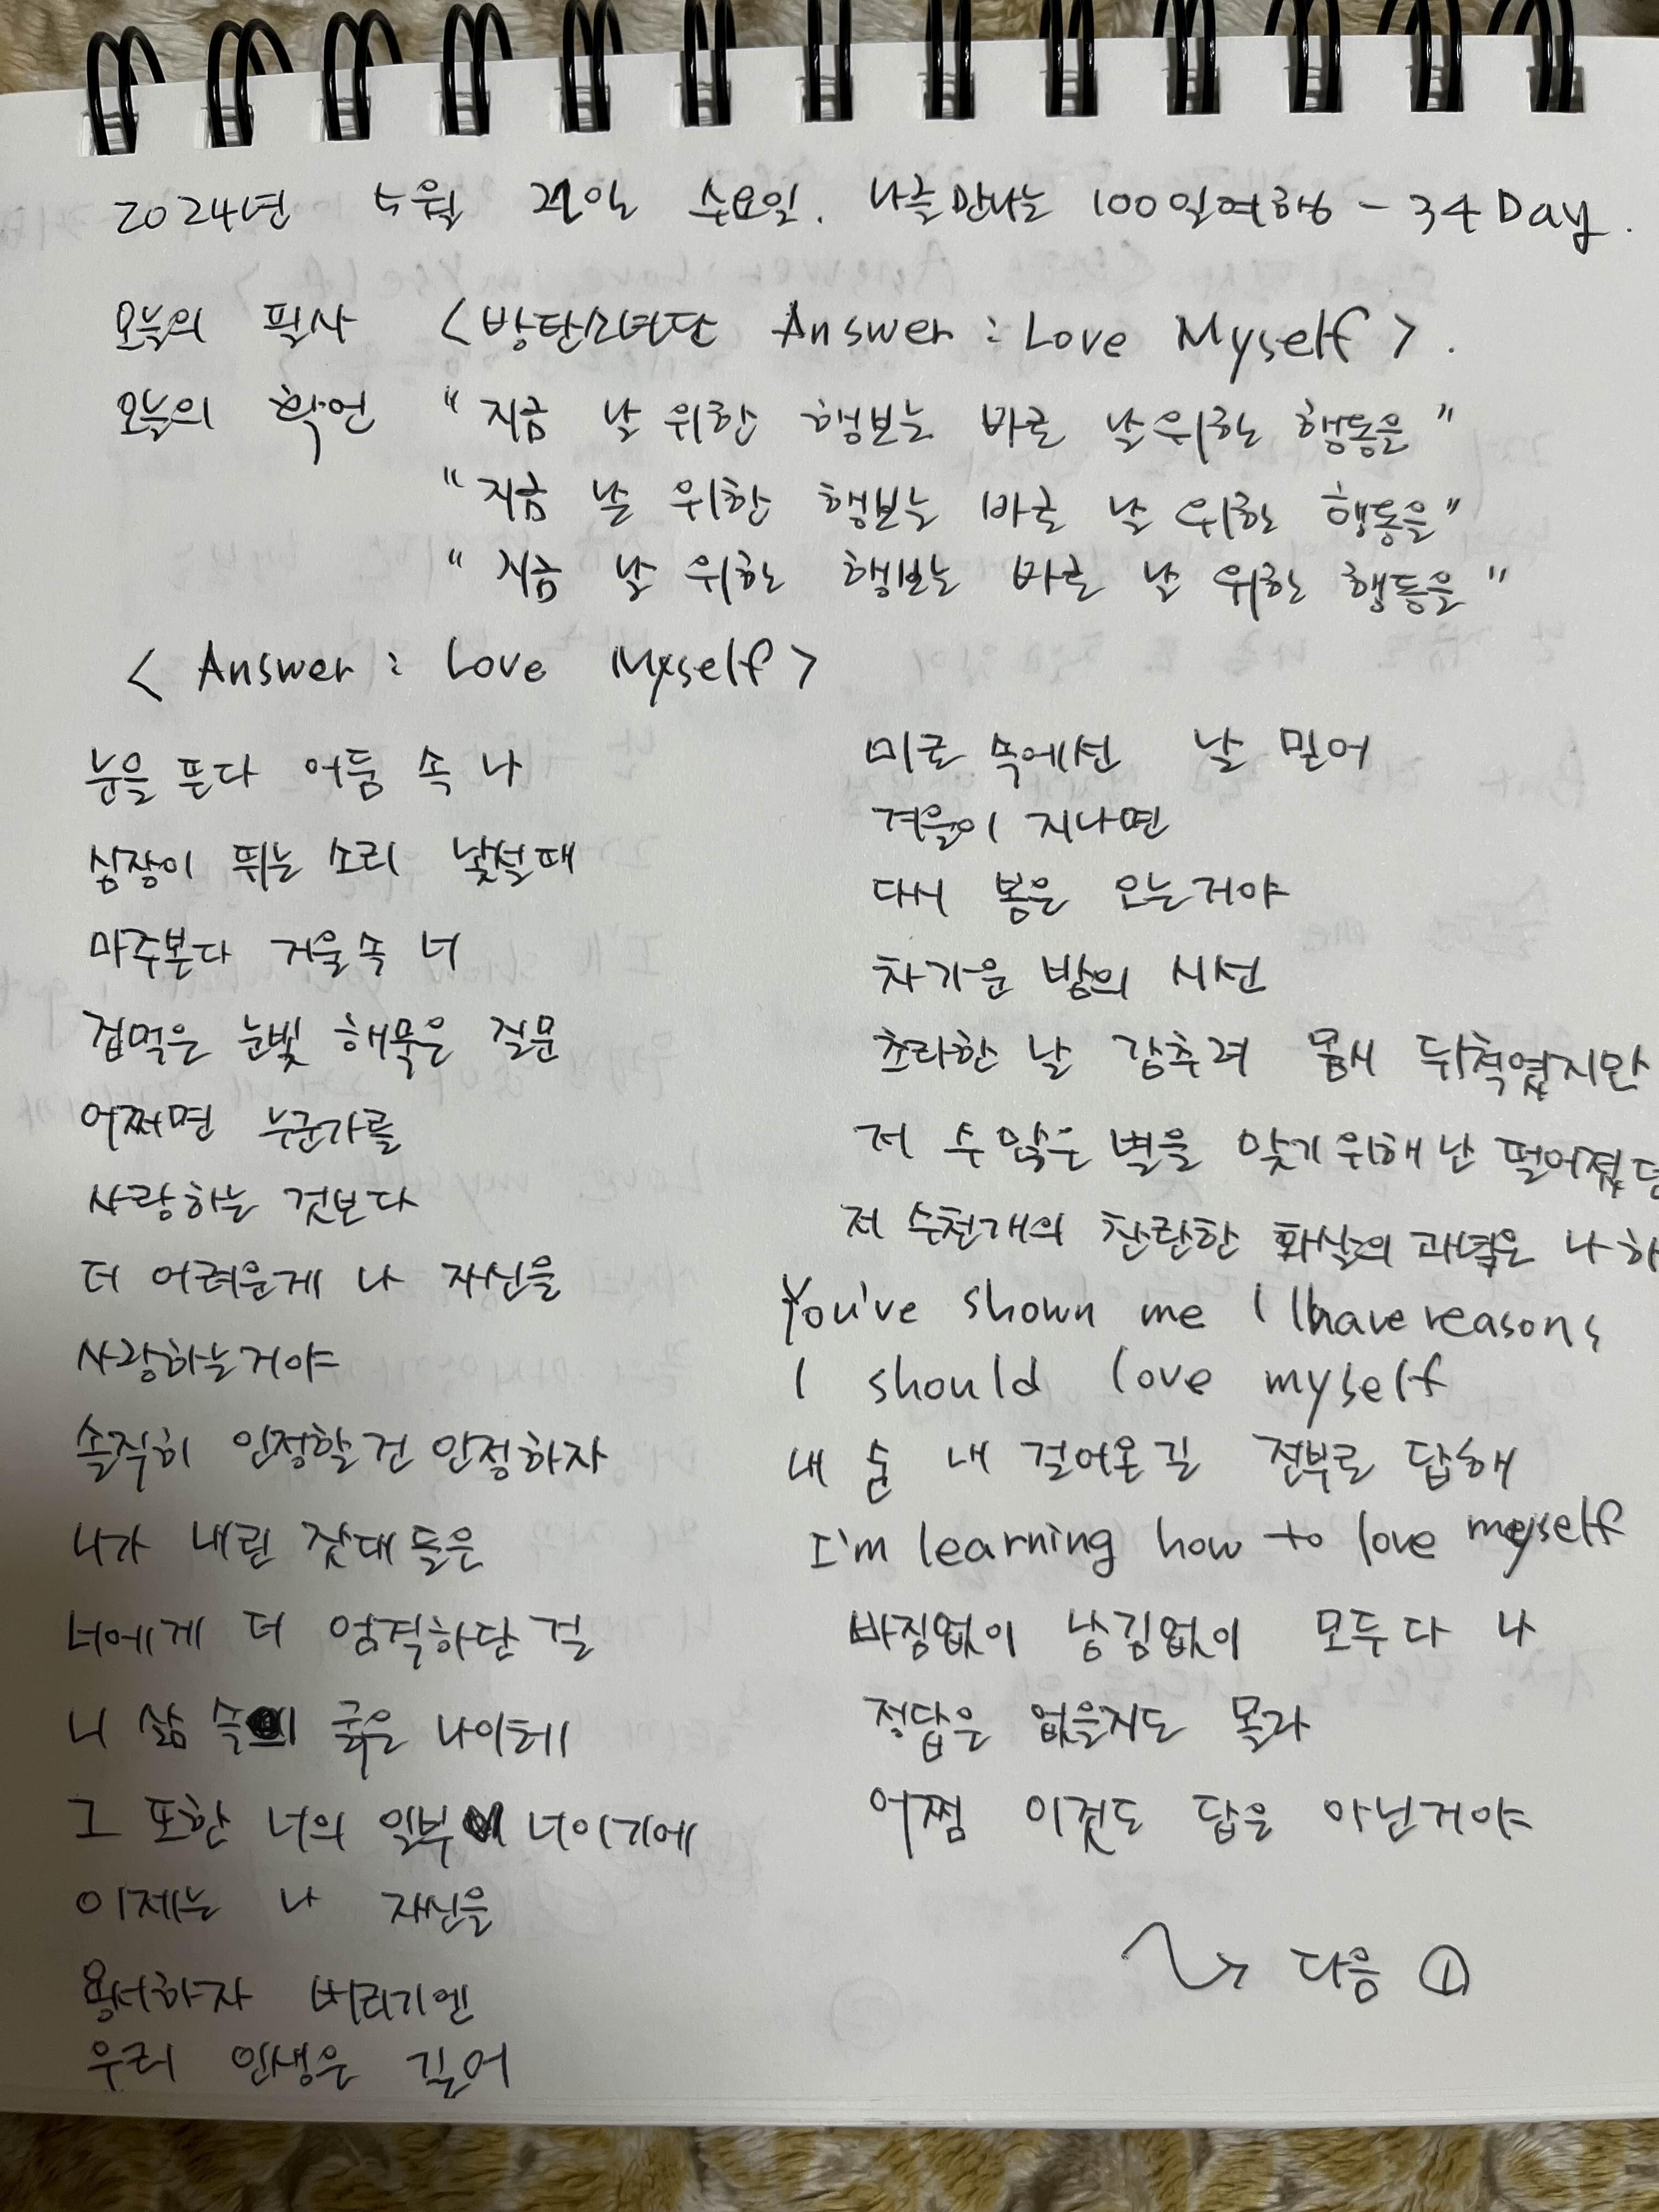 2024년 5월 수요일. 나를만나는 100일여행 - 34 Day.
오늘의 필사 <방탄소년단 Answer : Love Myself>.
오늘의 확언 "지금 날 위한 행보는 바로 날위한 행동을"
"지금 날 위한 행보는 바로 날 위한 행동을"
"지금 날 위한 행보는 바로 날 위한 행동을"
< Answer : Love Myself >
눈을 뜬다 어둠 속 나
심장이 뛰는 소리 낯설때
마주본다 거울속 너
겁먹은 눈빛 해묵은 질문
어쩌면 누군가를
사랑하는 것보다
더 어려운게 나 자신을
사랑하는거야
솔직히 인정할건 인정하자
니가 내린 잣대들은
너에게 더 엄격하단 걸
니 삶 속의 굵은 나이테
그 또한 너의 일부 너이기에
이제는 나 자신을
용서하자 버리기엔
우리 인생은 길어
미로 속에선 날 믿어
겨울이 지나면
다시 봄은 오는거야
차가운 밤의 시선
초라한 날 감추려 몹시 뒤척였지만
저 수많은 별을 맞기위해 난 떨어졌던
저 수천개의 찬란한 화살의 과녁은 나 하
You've shown me I have reasons
I should love myself
내 숨 내 걸어온길 전부로 답해
I'm learning how to love myself
빠짐없이 남김없이 모두다 나
정답은 없을지도 몰라
어쩜 이것도 답은 아닌거야
다음 ①